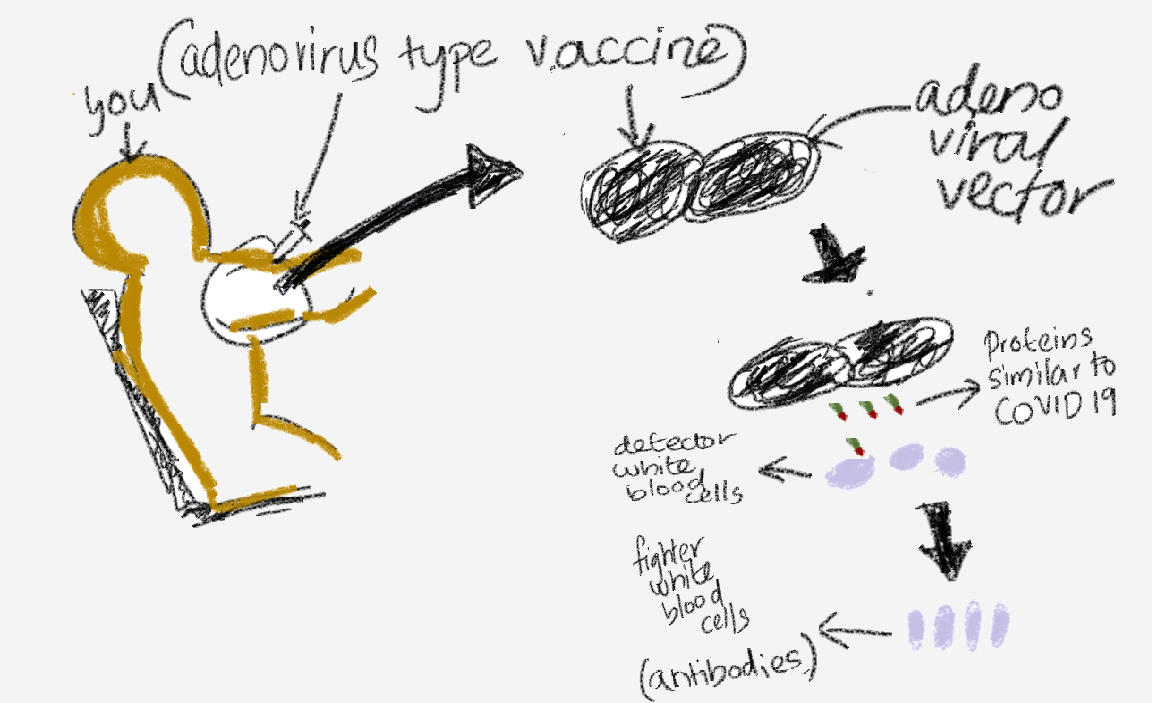 (adenovirus type vaccine)
you
adeno
viral
vector
Proteins
similar to
COVID 19
detector
white
blood
cells
fighter
white
blood
cells
(antibodies)